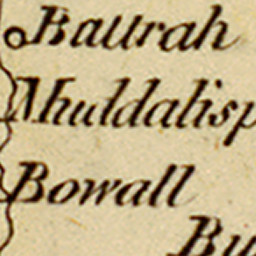 Battrah
Mhuddalisp
Bowall
Bu